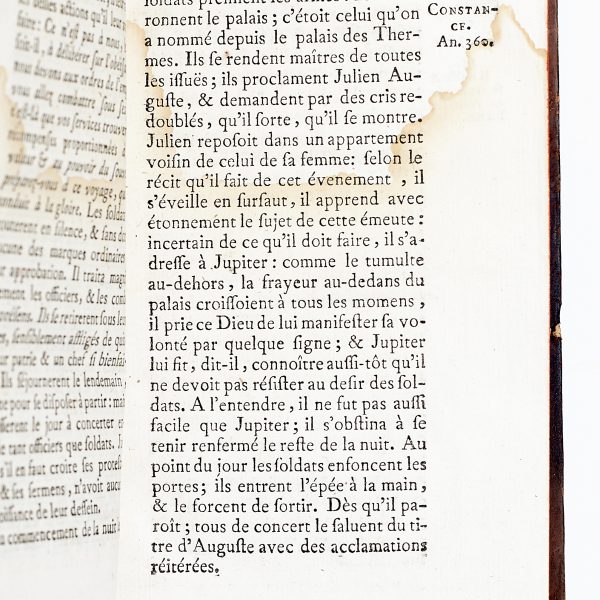 à nous
fait-il, à délibérer ſur
nous devons aux ordres de
combattre ſous
que vos ſervices
proportionnées à
valeur & au pouvoir du
préparez-vous à ce voyage, qu
à la gloire. Les ſoldat
en ſilence, & ſans
des marques ordinaires
approbation. Il traita
les officiers, & les com
Ils ſe retirerent ſous leu
ſenſiblement affligés de
patrie & un chef ſi bienfai
Ils ſéjournerent le lendemain,
pour ſe diſpoſer à partir: mai
le jour à concerter en
tant officiers que ſoldats. I
s'il en faut croire ſes proteſ
& ſes ſermens, n'avoit auc
de leur deſſein.
commencement de la nuit
ſoldats prennent les armes
ronnent le palais; c'étoit celui qu'on
a nommé depuis le palais des Ther-
mes. Ils ſe rendent maîtres de toutes
les iſſuës; ils proclament Julien Au-
guſte, & demandent par des cris re-
doublés, qu'il ſorte, qu'il ſe montre.
Julien repoſoit dans un appartement
voiſin de celui de ſa femme: ſelon le
récit qu'il fait de cet évenement, il
s'éveille en ſurſaut, il apprend avec
étonnement le ſujet de cette émeute:
incertain de ce qu'il doit faire, il s'a-
dreſſe à Jupiter: comme le tumulte
au-dehors, la frayeur au-dedans du
palais croiſſoient à tous les momens,
il prie ce Dieu de lui manifeſter ſa vo-
lonté par quelque ſigne; & Jupiter
lui fit, dit-il, connoître auſſi-tôt qu'il
ne devoit pas réſiſter au deſir des ſol-
dats. A l'entendre, il ne fut pas auſſi
facile que Jupiter; il s'obſtina à ſe
tenir renfermé le reſte de la nuit. Au
point du jour les ſoldats enfoncent les
portes; ils entrent l'épée à la main,
& le forcent de ſortir. Dès qu'il pa-
roît; tous de concert le ſaluent du ti-
tre d'Auguſte avec des acclamations
réitérées.
CONSTAN-
CE.
An. 360.